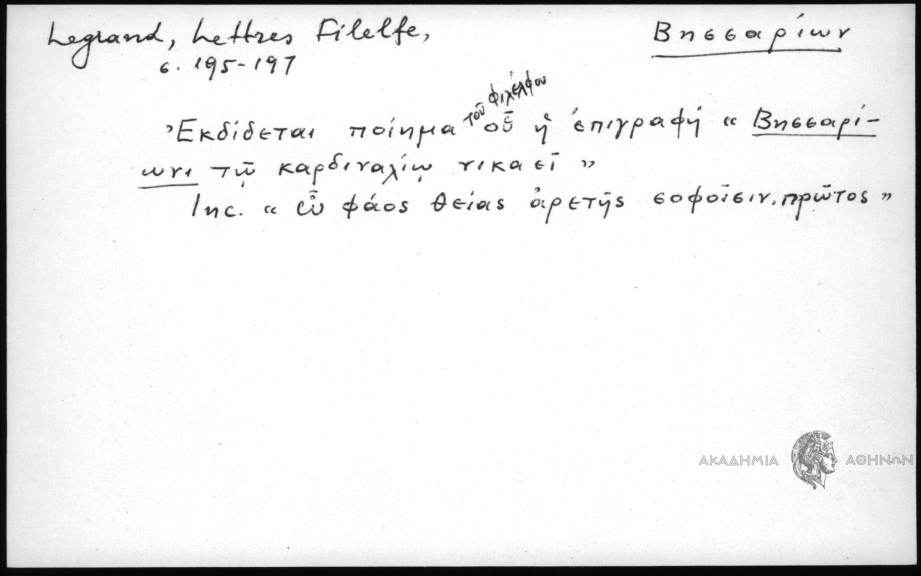 Legrand, Lettres Filelfe,
Βησσαρίων
σ. 195-197
τοῦ Φιλέλφου
Ἐκδίδεται ποίημα οὗ ἡ ἐπιγραφή « Βησσαρί-
ωνι τῷ καρδιναλίῳ νικαεῖ »
Inc. « εὖ φάος θείας ἀρετῆς σοφοῖσιν.πρῶτος »
ΑΚΑΔΗΜΙΑ ΑΘΗΝΩΝ